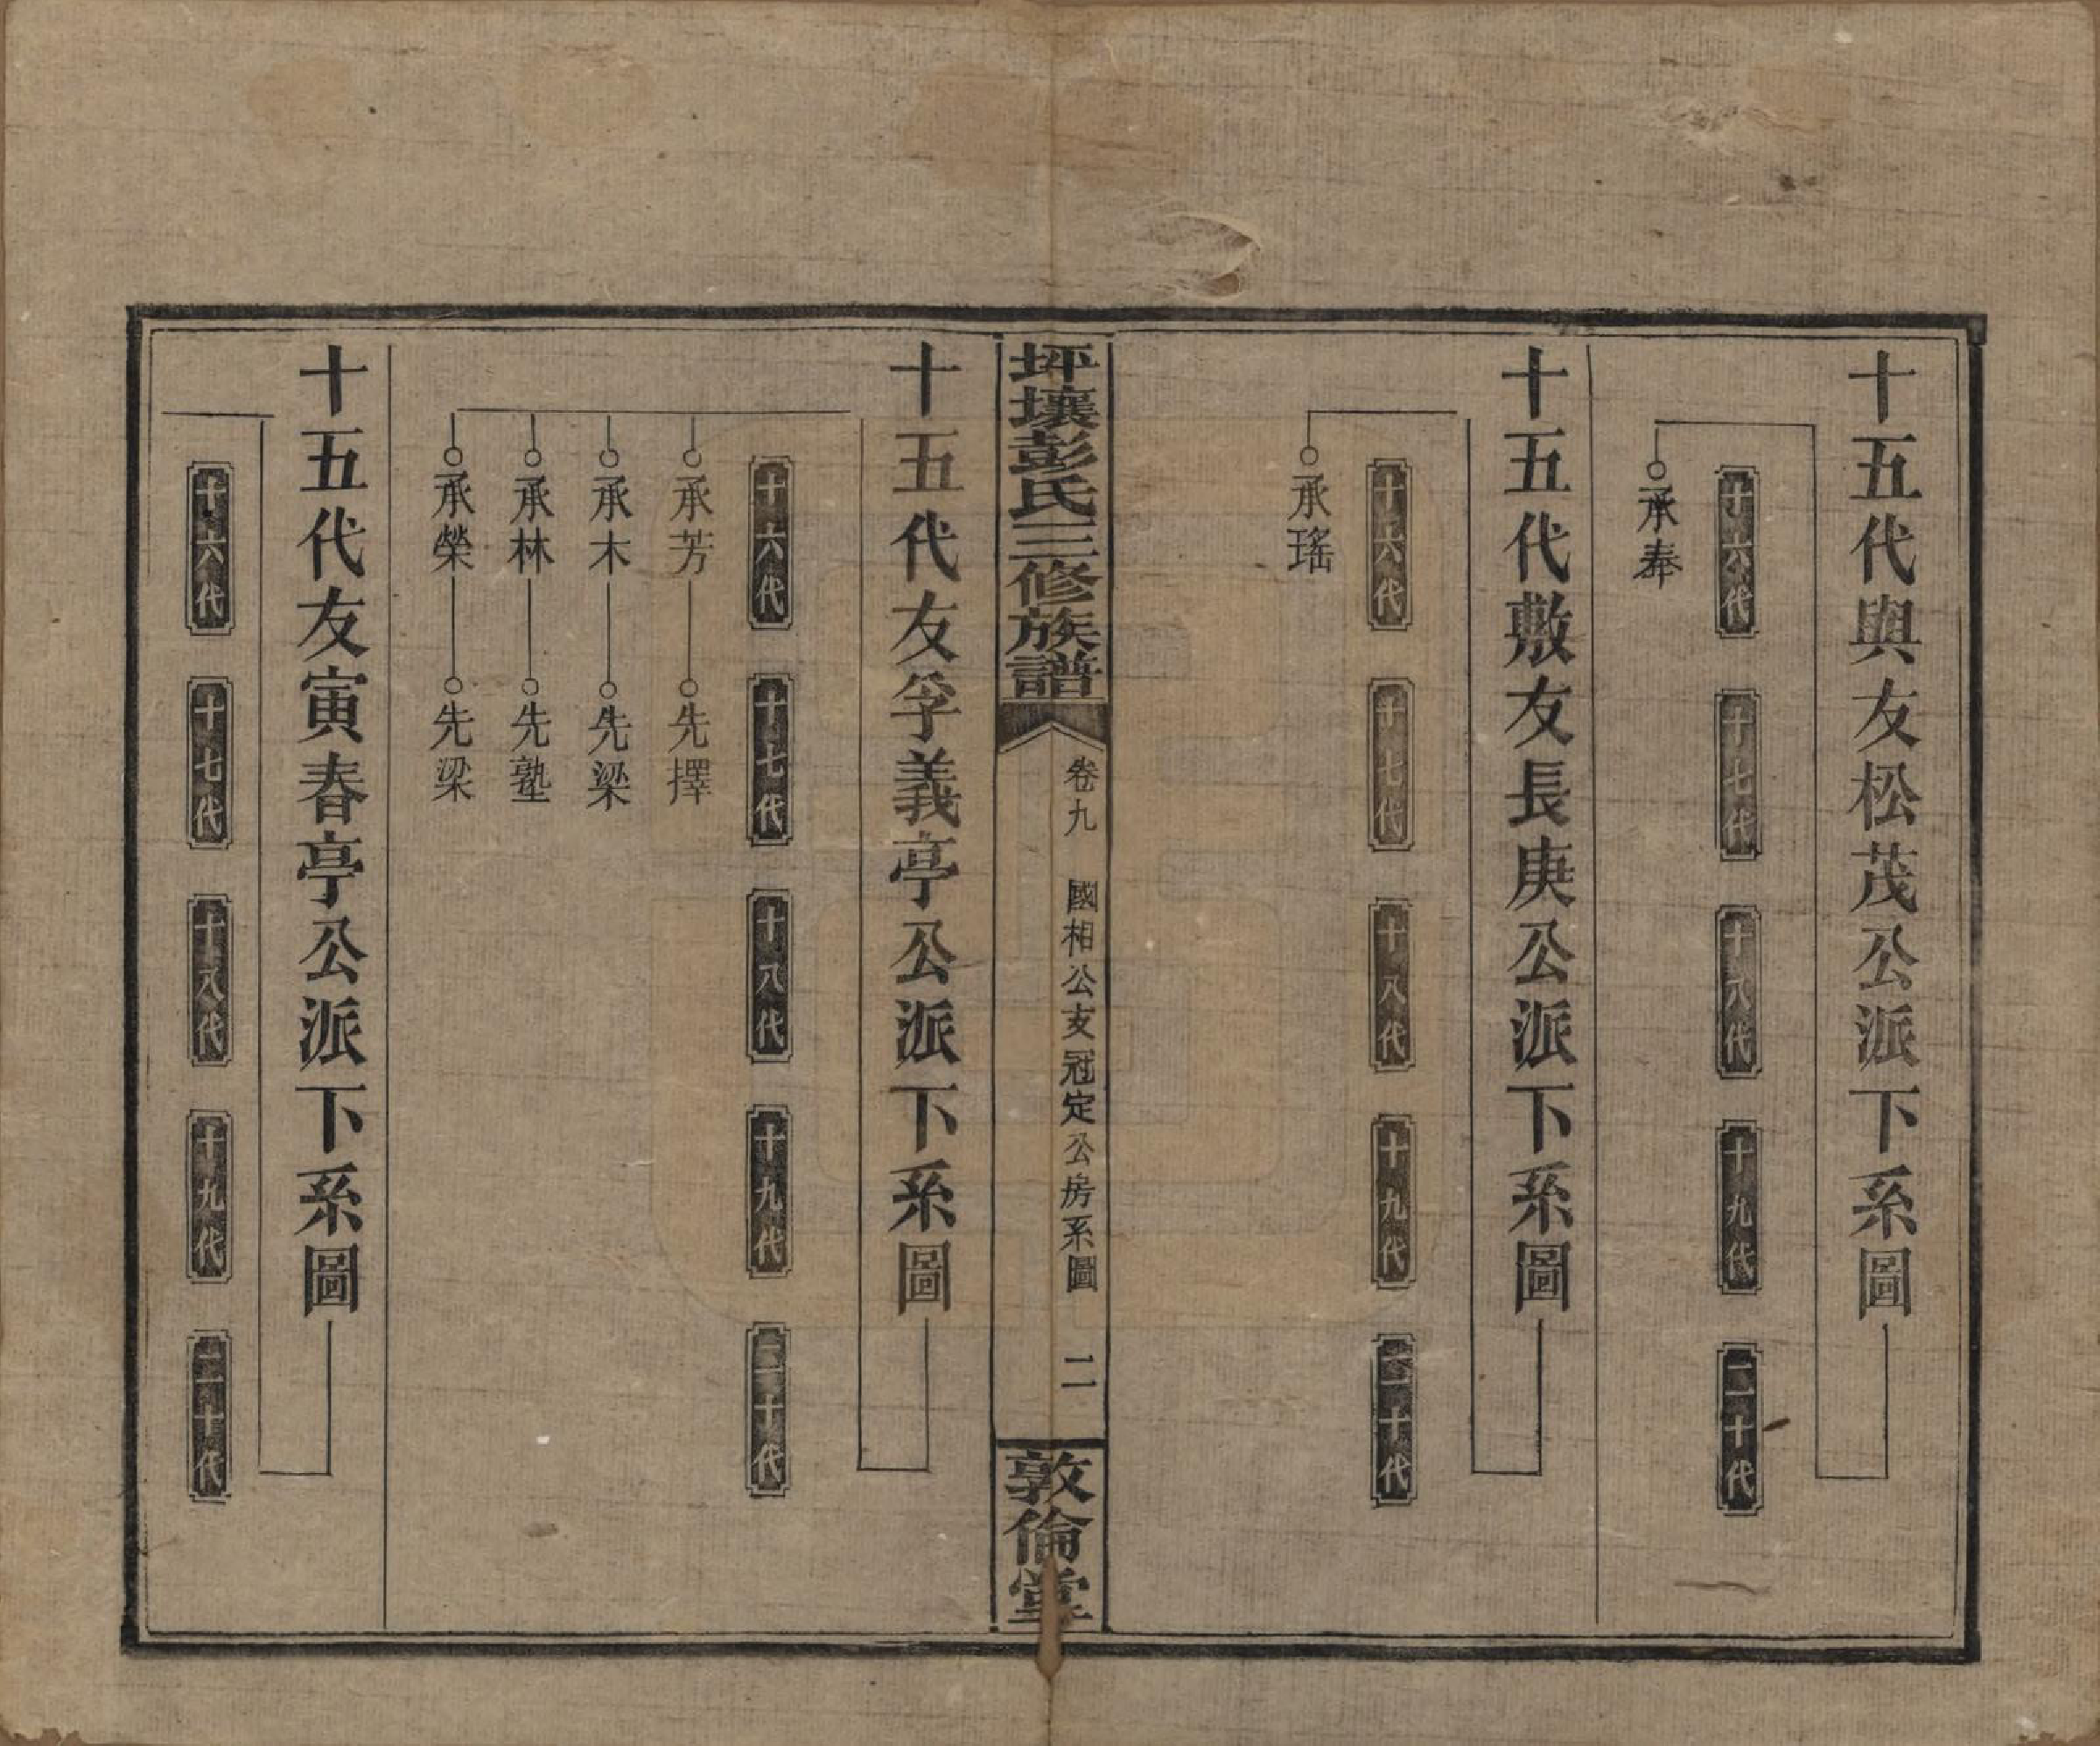 十五代與友松茂公派下系圖
十六代 十七代 十八代 十九代 二十代
承奉
十五代敷友長庚公派下系圖
十六代 十七代 十八代 十九代 二十代
承瑤
坪壤彭氏三修族譜 卷九 國相公支冠定公房系圖 二 敦倫堂
十五代友孚義亭公派下系圖
十六代 十七代 十八代 十九代 二十代
承芳 先擇
承木 先梁
承林 先塾
承榮 先梁
十五代友寅春亭公派下系圖
十六代 十七代 十八代 十九代 二十代